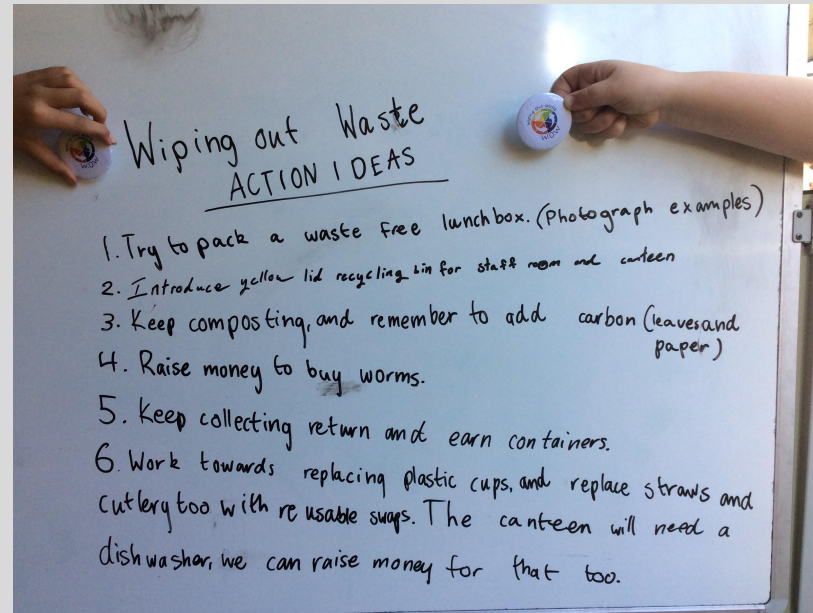 Wiping out Waste
ACTION IDEAS
1. Try to pack a waste free lunchbox. (Photograph examples)
2. Introduce yellow lid recycling bin for staff room and canteen
3. Keep composting, and remember to add carbon (leaves and
paper)
4. Raise money to buy worms.
5. Keep collecting return and earn containers.
6. Work towards replacing plastic cups, and replace straws and
cutlery too with reusable swaps. The canteen will need a
dishwasher, we can raise money for that too.
WOW
WOW